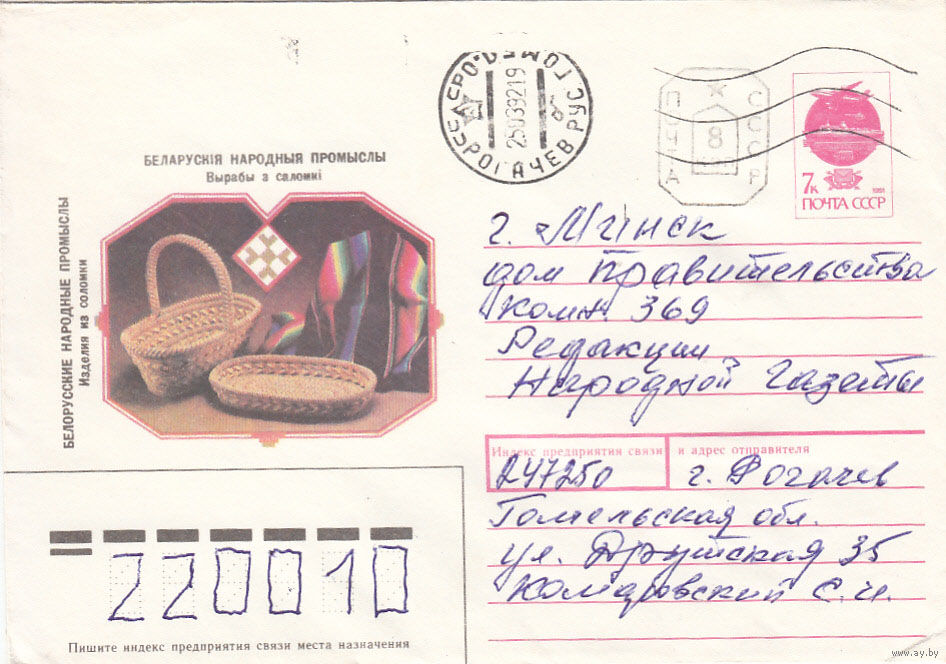 БЕЛАРУСКІЯ НАРОДНЫЯ ПРОМЫСЛЫ
Вырабы з саломкі
БЕЛОРУССКИЕ НАРОДНЫЕ ПРОМЫСЛЫ
Изделия из соломки
РОГАЧЕВ
25039219
ПЧТА
СССР
8
7к
1991
ПОЧТА СССР
г. Минск
дом Правительства
комн. 369
Редакции
Народной Газеты
Индекс предприятия связи и адрес отправителя
247250 г. Рогачев
Гомельская обл.
ул. Друтская 35
Комаровский С.И.
220010
Пишите индекс предприятия связи места назначения
www.ay.by